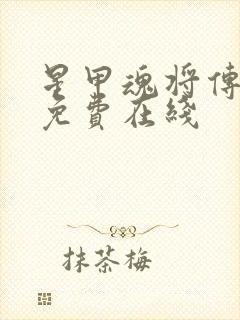 星甲魂将傳
免費在綫
抹茶梅